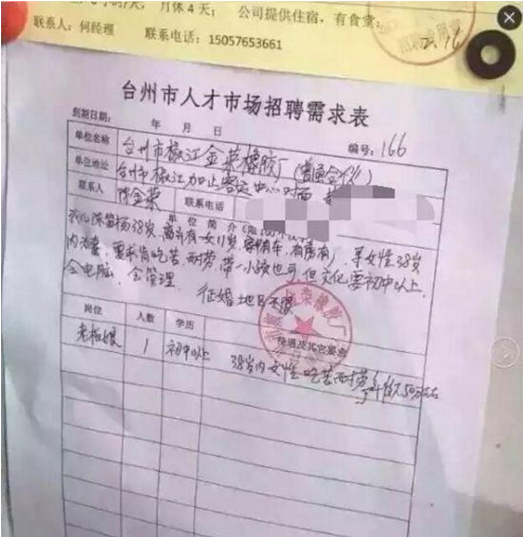 月休4天； 公司提供住宿，有食堂
联系人：何经理 联系电话：15057653661
台州市人才市场招聘需求表
到期日期： 年 月 日 编号：166
单位名称 台州市椒江金荣橡胶厂（普通合伙）
单位地址 台州市椒江加止客运中心对面
联系人 陈金荣 联系电话
单位简介
38岁，离异有一女11岁，有车，有房有厂，寻女性38岁
内未妻，要求肯吃苦，耐劳，带一小孩也可，但文化要初中以上，
会电脑，会管理
征婚地区不限
岗位 人数 学历 待遇及其它要求
老板娘 1 初中以上 38岁内女性吃苦耐劳年